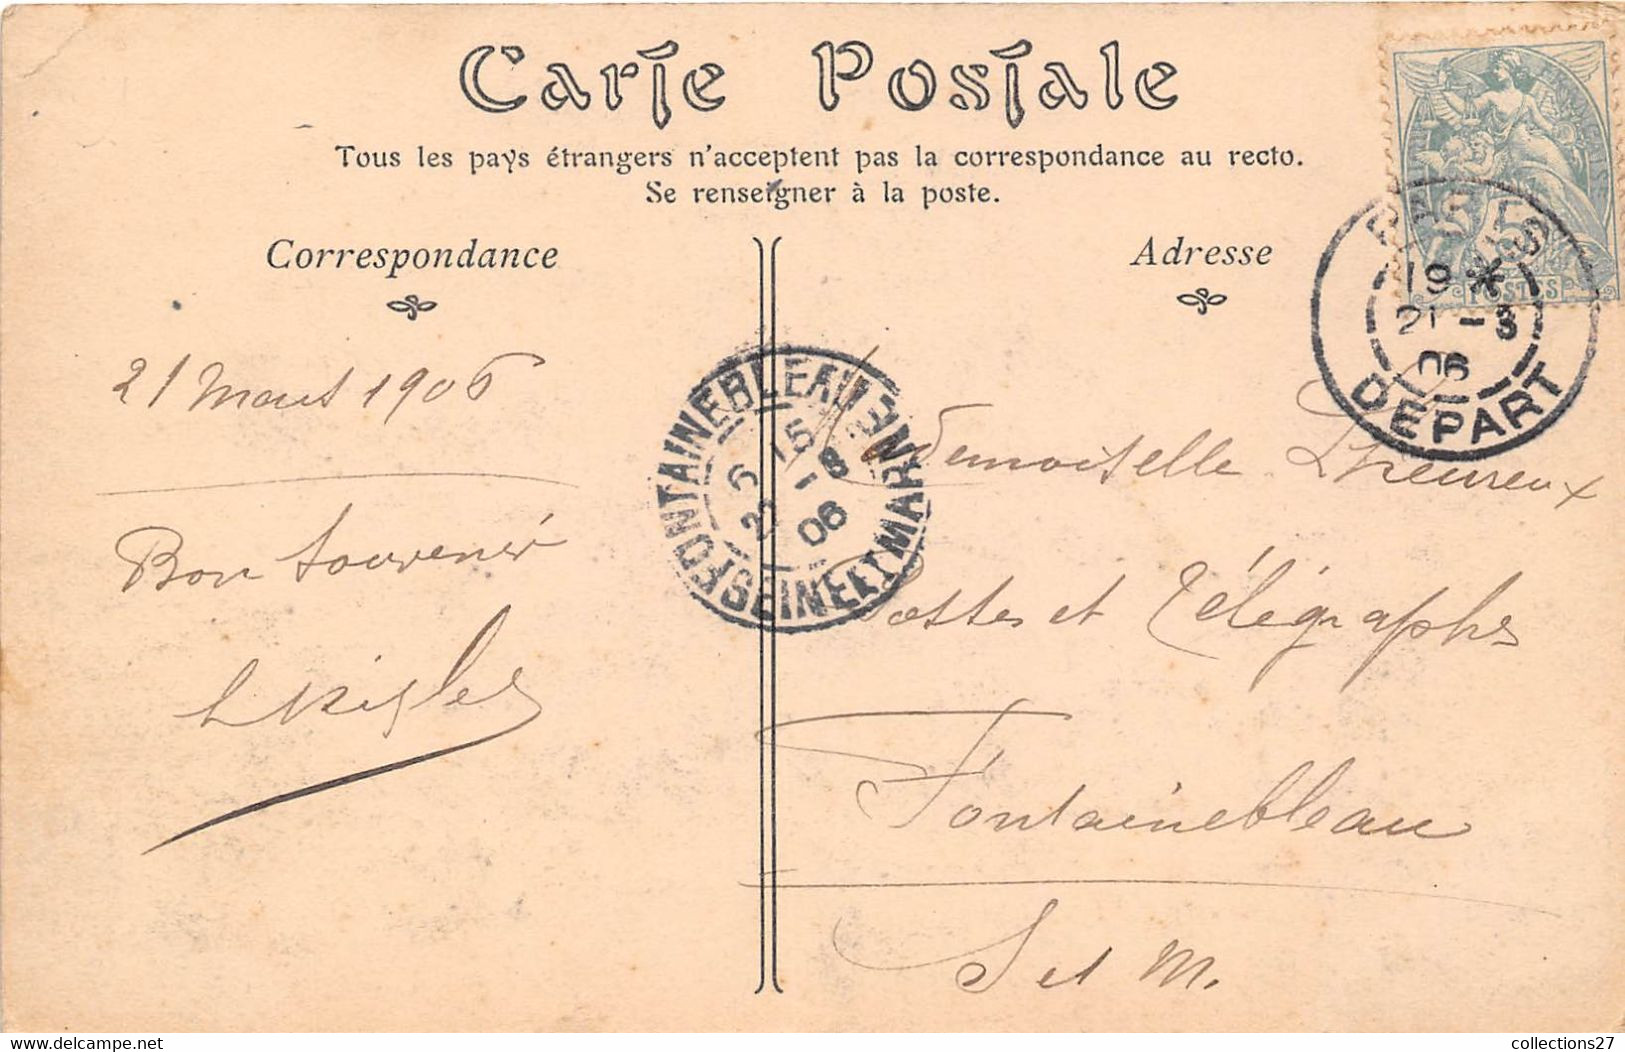 Carte Postale
Tous les pays étrangers n'acceptent pas la correspondance au recto.
Se renseigner à la poste.
Correspondance
Adresse
21 Mars 1906
Bon Souvenir
Mademoiselle Lheureux
Postes et Télégraphes
Fontainebleau
S et M.
PARIS
19 *
21 - 3
06
DEPART
FONTAINEBLEAU
SEINE ET MARNE
6 15
22 - 3
06
POSTES
5
www.delcampe.net
collections27